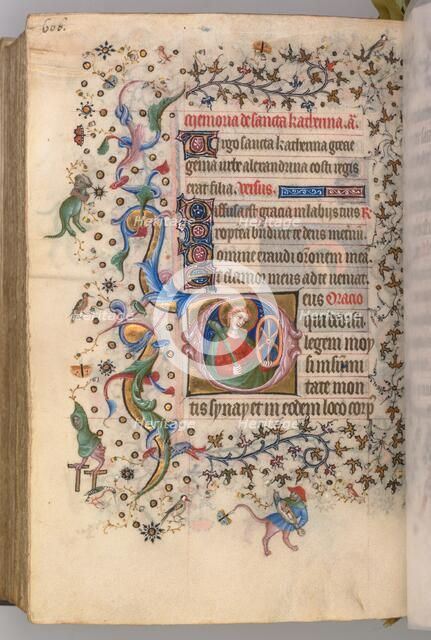 606.
Memoria de sancta katherina. a.
Virgo sancta katherina grecie
gemma urbe alexandrina costi regis
erat filia. Versus.
Diffusa est gracia in labiis tuis R
Propterea benedixit te deus
Domine exaudi oronem mea
Et clamor meus ad te veniat
eus Oracio
qui dedisti
legem moy
si in summi
tate mon
tis synay et in eodem loco corp
Heritage Images
Heritage Images
Heritage Images
Heritage Images
Heritage Images